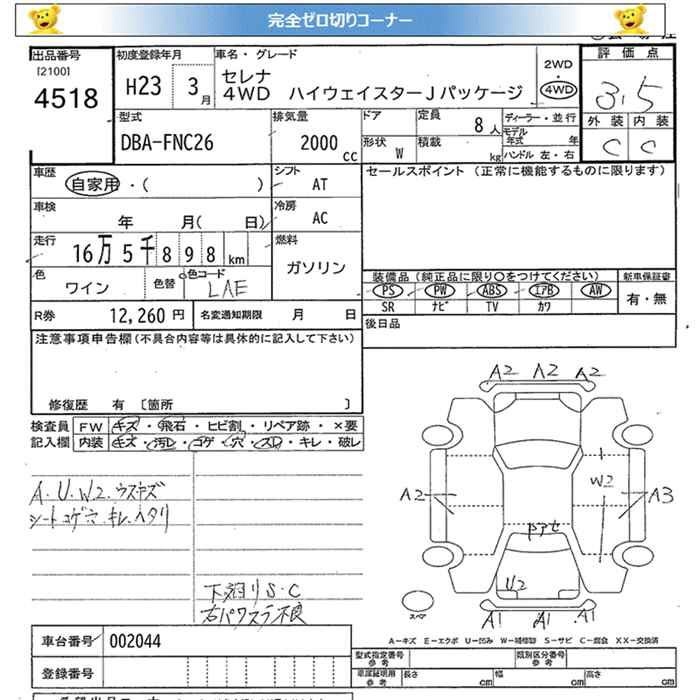 完全ゼロ切りコーナー
出品番号
[2100]
4518
初度登録年月
H23 3月
車名・グレード
セレナ
4WD ハイウェイスターJパッケージ
2WD
・
4WD
評価点
3.5
外装 内装
C C
型式
DBA-FNC26
排気量
2000 cc
ドア
定員
8人
形状
W
積載
kg
ディーラー・並行
モデル年式 年
ハンドル 左・右
車歴
自家用・( )
シフト
AT
車検
年 月( 日)
冷房
AC
走行
16万5千898km
燃料
ガソリン
色
ワイン
色替
色コード
LAE
R券
12,260円
名変通知期限 月 日
セールスポイント (正常に機能するものに限ります)
装備品(純正品に限り○をつけてください)
PS PW ABS エアB AW
SR ナビ TV カワ
新車保証書
有・無
後日品
注意事項申告欄(不具合内容等は具体的に記入して下さい)
修復歴 有 〔箇所 〕
検査員記入欄
FW キズ・飛石・ヒビ割・リペア跡・×要
内装 キズ・汚レ・コゲ・穴・スレ・キレ・破レ
A.U.W2.ウスキズ
シートコゲ穴.キレ.ヘタリ
下廻りS.C
右パワスラ不良
A2 A2 A2
A2
W2
A3
U2
A1 A1 A1
スペア
A-キズ E-エクボ U-凹み W-補修跡 S-サビ C-腐食 XX-交換済
車台番号 002044
登録番号
型式指定番号
参考
類別区分番号
参考
車庫証明用
参考
長さ cm
幅 cm
高さ cm